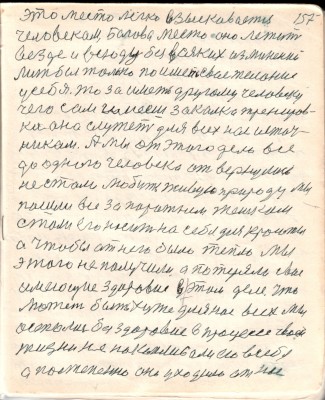 это место легко взыскивается 157
человекам. Богова место оно лежит
везде и всюду без всяких изменений
лишь бы только поиметь свое желание
у себя. то заиметь другому человеку
чего сам закалка трениров-
ка она служит для всех нас источ-
никам. А мы от этого дела все
до одного человека отвернулись
не стали любить живую природу мы
пошли все за паратним
стали его носить на себе для красоты
а чтобы от него было тепло мы
этого не получили, а потеряли свое
имеющие здоровие в этом деле что
может быть хуже для нас всех мы
остались без здоровие в процессе своей
жизни не накапливали его в себе
а постепенно оно уходило от нас